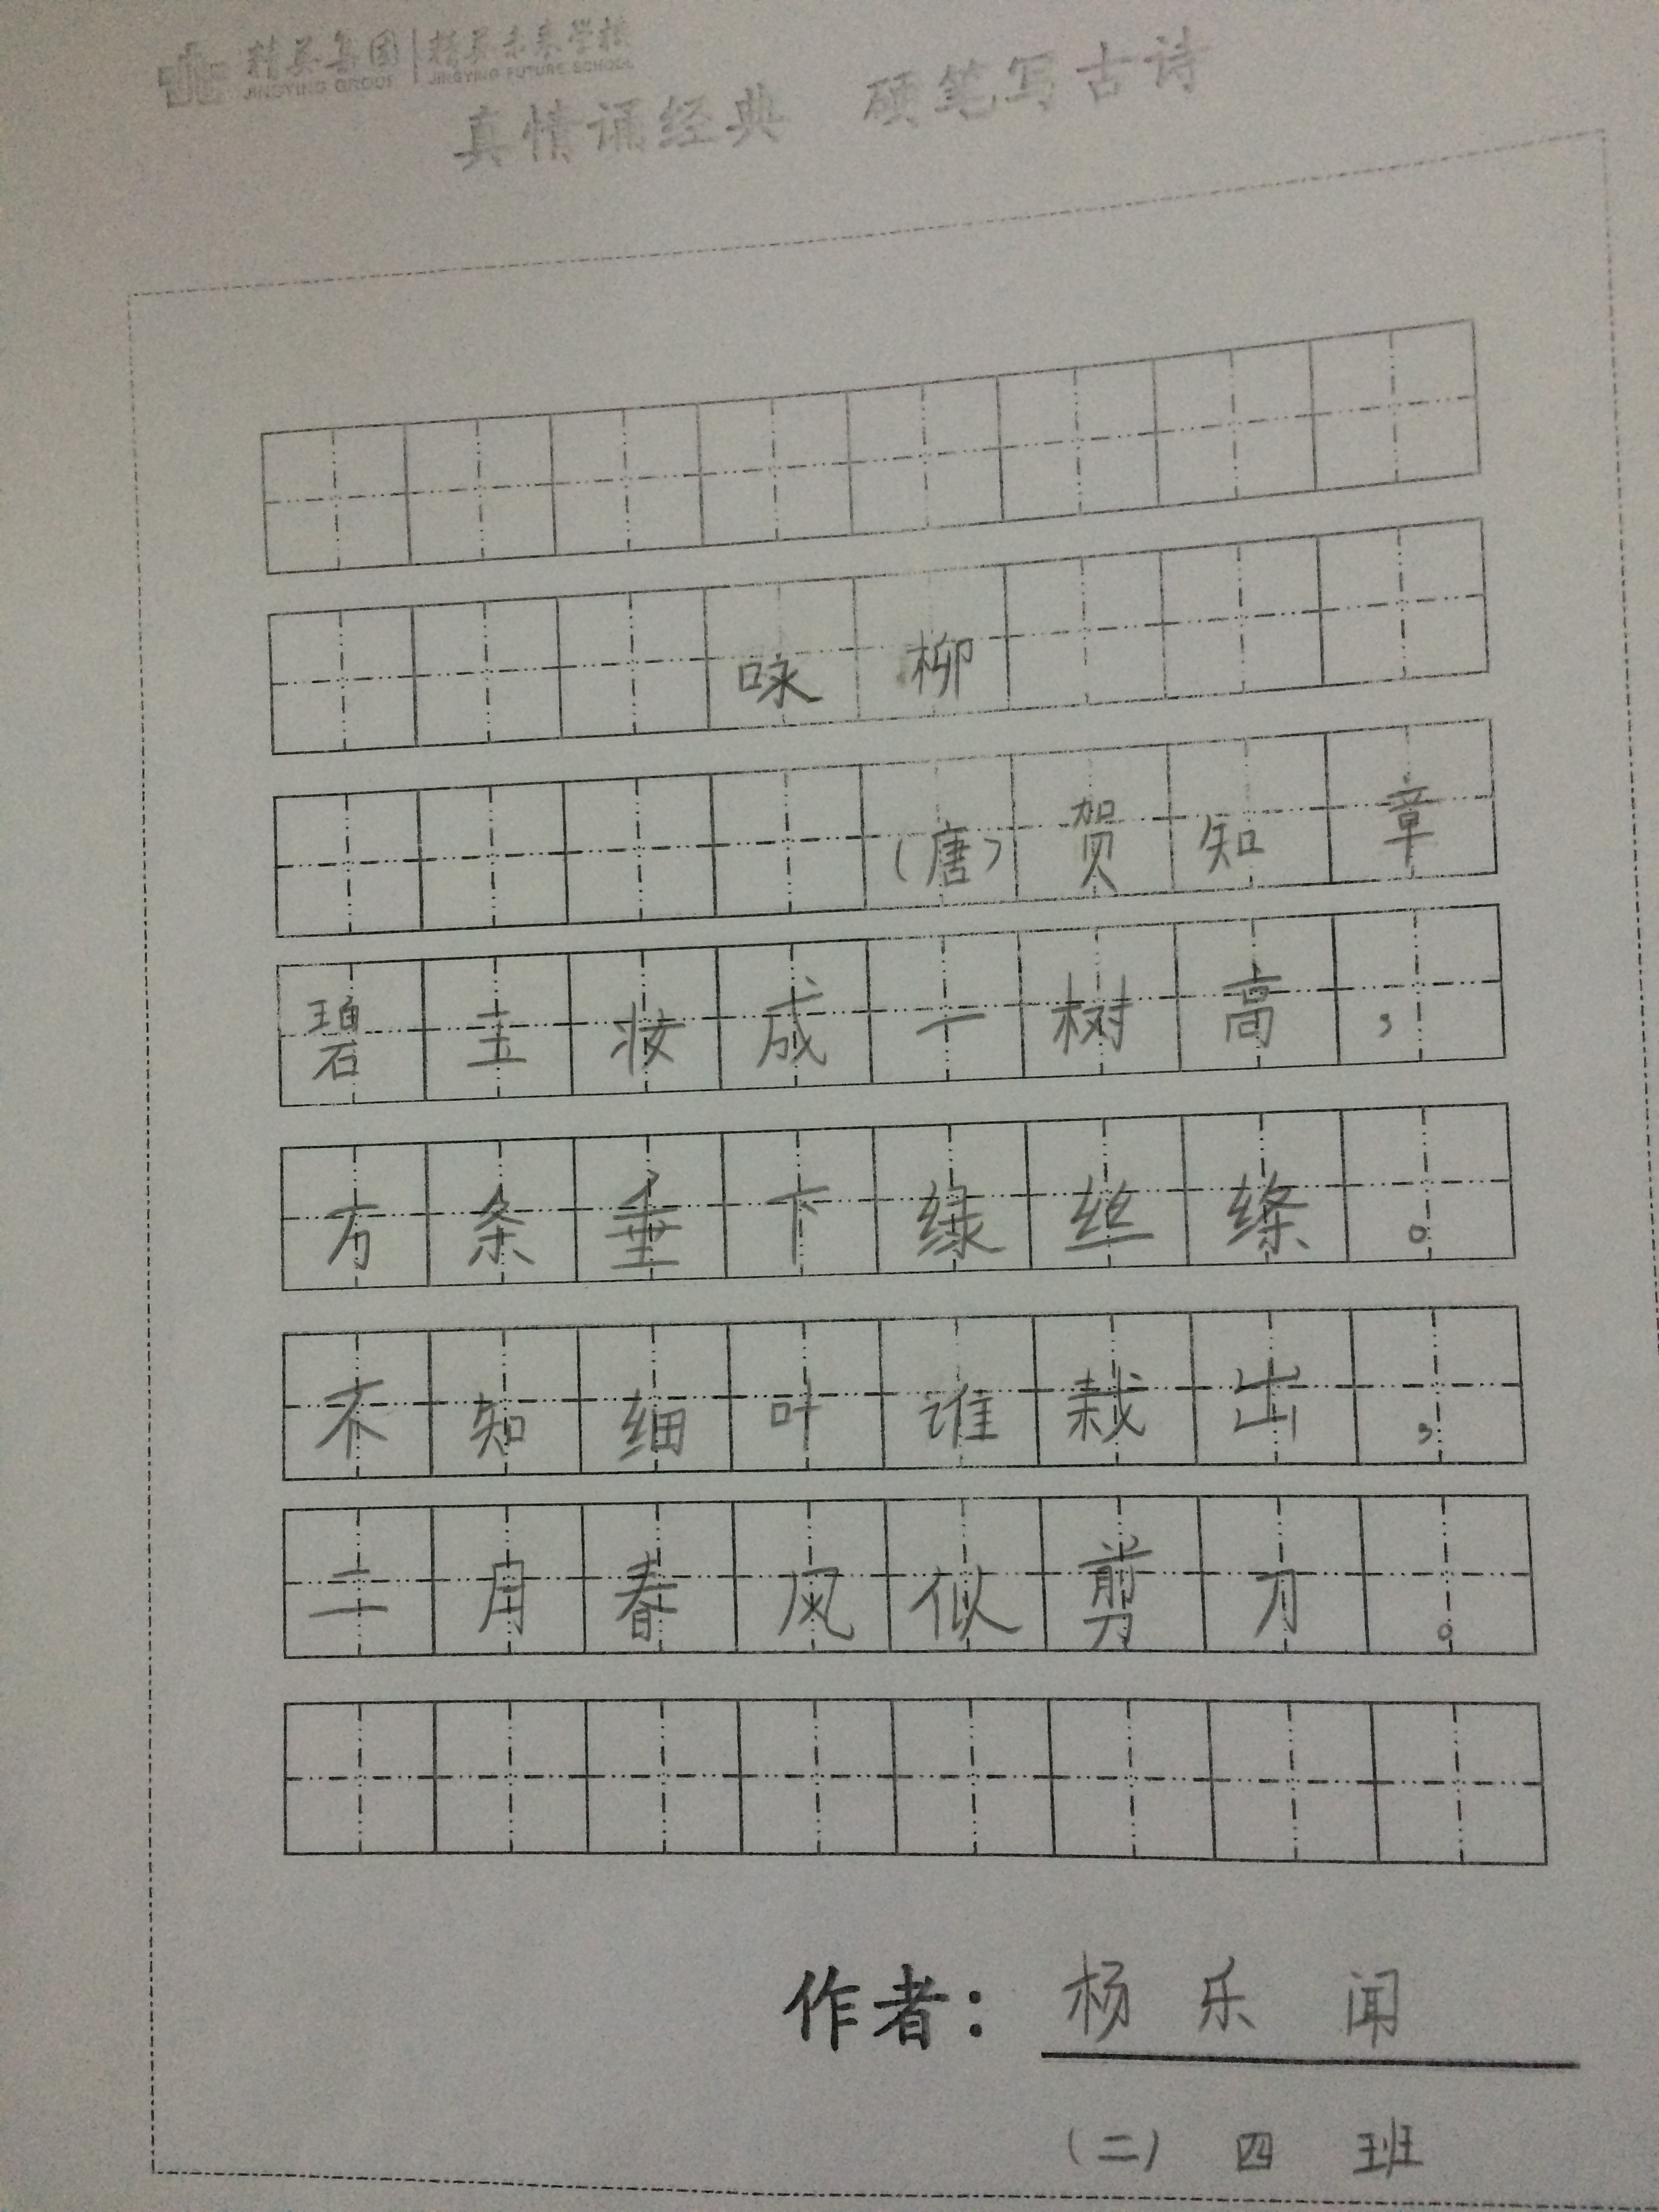 精英集团 精英未来学校
JINGYING GROUP JINGYING FUTURE SCHOOL
真情诵经典 硬笔写古诗
咏柳
（唐）贺知章
碧玉妆成一树高，
方条垂下绿丝绦。
不知细叶谁裁出，
二月春风似剪刀。
作者：杨乐闻
（二）四班